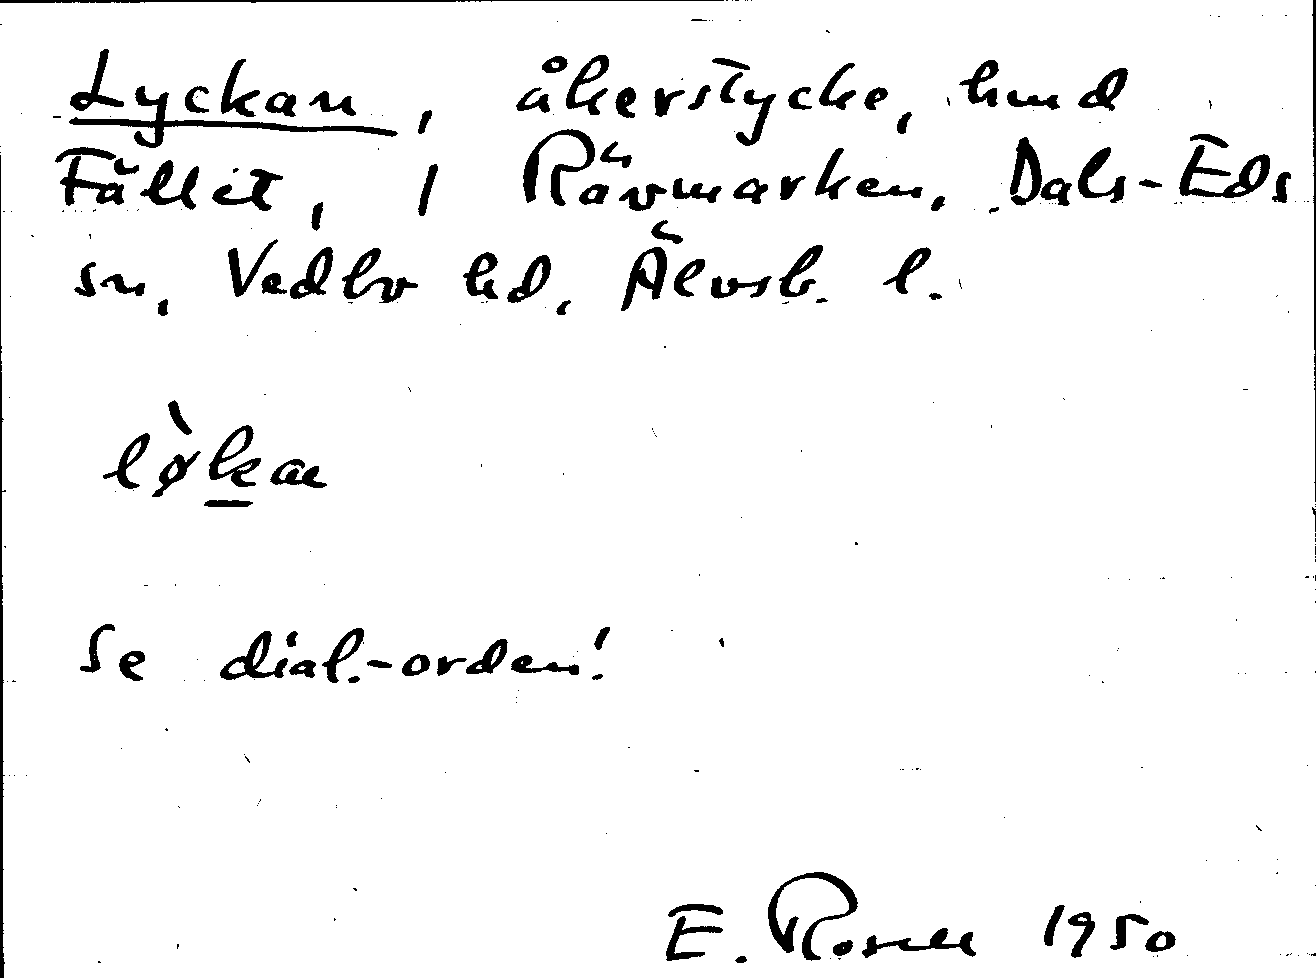 Lyckan, åkerstycke, hmd
Fället, 1 Rävmarken, Dals-Eds
sn, Vedbo hd, Älvsb. l.
lø̀kae
Se dial.-orden!
E. Rosell 1950